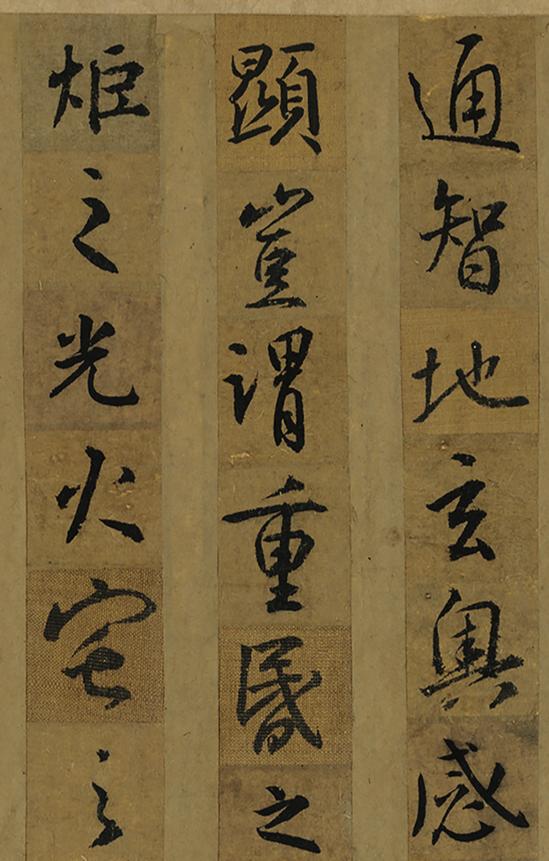 通智地玄奥感
顯豈謂重昏之
炬之光火宅之